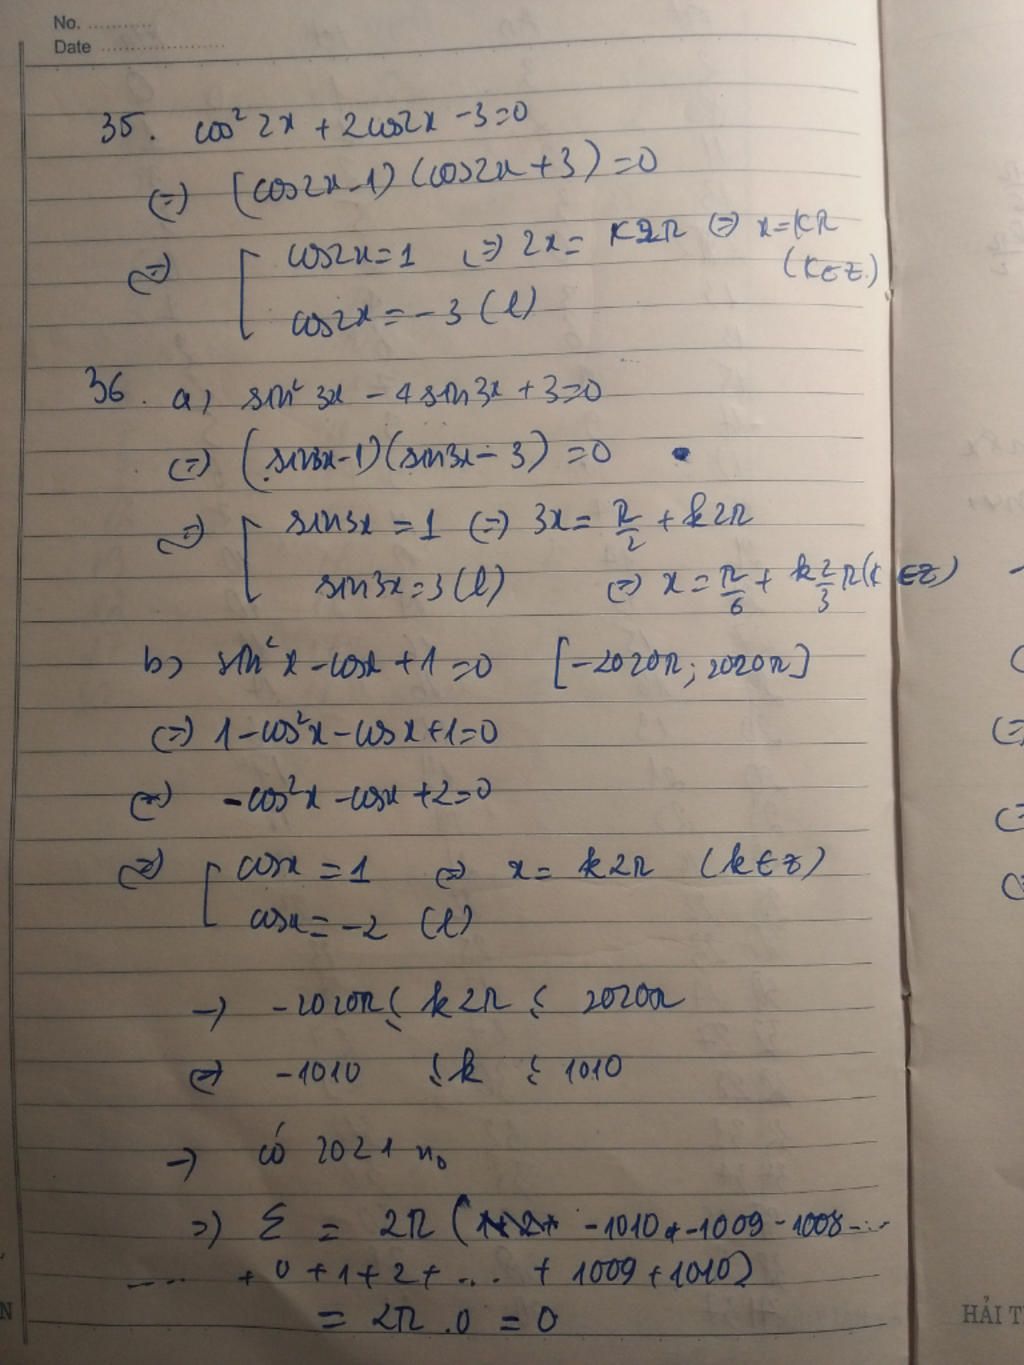 No. ............
Date ......................
35. cos² 2x + 2cos2x - 3 = 0
(=) (cos2x - 1) (cos2x + 3) = 0
(=) [ cos2x = 1 (=) 2x = k2π (=) x = kπ
(k ∈ Z)
cos2x = -3 (l)
36. a) sin² 3x - 4 sin3x + 3 = 0
(=) (sin3x - 1)(sin3x - 3) = 0
(=) [ sin3x = 1 (=) 3x = π/2 + k2π
sin3x = 3 (l) (=) x = π/6 + k 2/3 π (k ∈ Z)
b) sin² x - cosx + 1 = 0 [-2020π; 2020π]
(=) 1 - cos²x - cosx + 1 = 0
(=) -cos²x - cosx + 2 = 0
(=) [ cosx = 1 (=) x = k2π (k ∈ Z)
cosx = -2 (l)
→ -2020π ≤ k2π ≤ 2020π
(=) -1010 ≤ k ≤ 1010
→ có 2021 n₀
=) Σ = 2π ( -1010 + -1009 - 1008 - ...
.... + 0 + 1 + 2 + ... + 1009 + 1010)
= 2π . 0 = 0
HẢI T